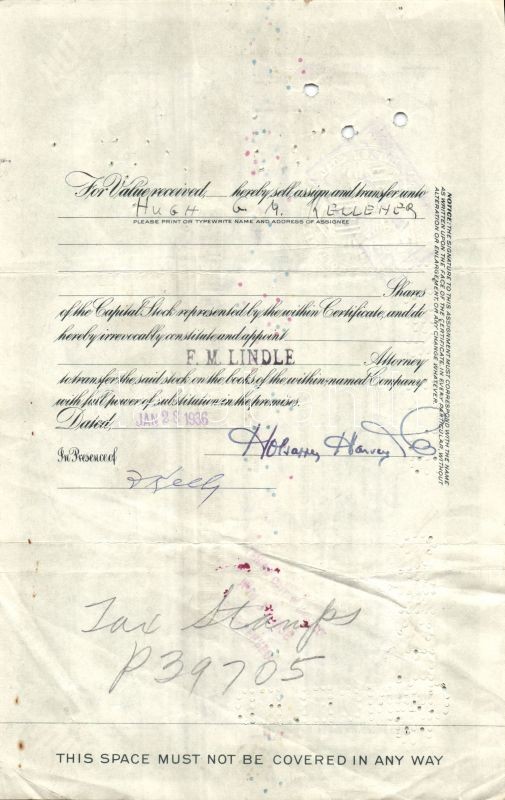 For Value received, hereby sell, assign and transfer unto
HUGH G. M. KELLEHER
PLEASE PRINT OR TYPEWRITE NAME AND ADDRESS OF ASSIGNEE
Shares
of the Capital Stock represented by the within Certificate, and do
hereby irrevocably constitute and appoint
F. M. LINDLE Attorney
to transfer the said stock on the books of the within-named Company
with full power of substitution in the premises.
Dated, JAN 28 1936
In Presence of
Harvey
NOTICE: THE SIGNATURE TO THIS ASSIGNMENT MUST CORRESPOND WITH THE NAME
AS WRITTEN UPON THE FACE OF THE CERTIFICATE, IN EVERY PARTICULAR, WITHOUT
ALTERATION OR ENLARGEMENT, OR ANY CHANGE WHATEVER.
Tax Stamps
P39705
THIS SPACE MUST NOT BE COVERED IN ANY WAY